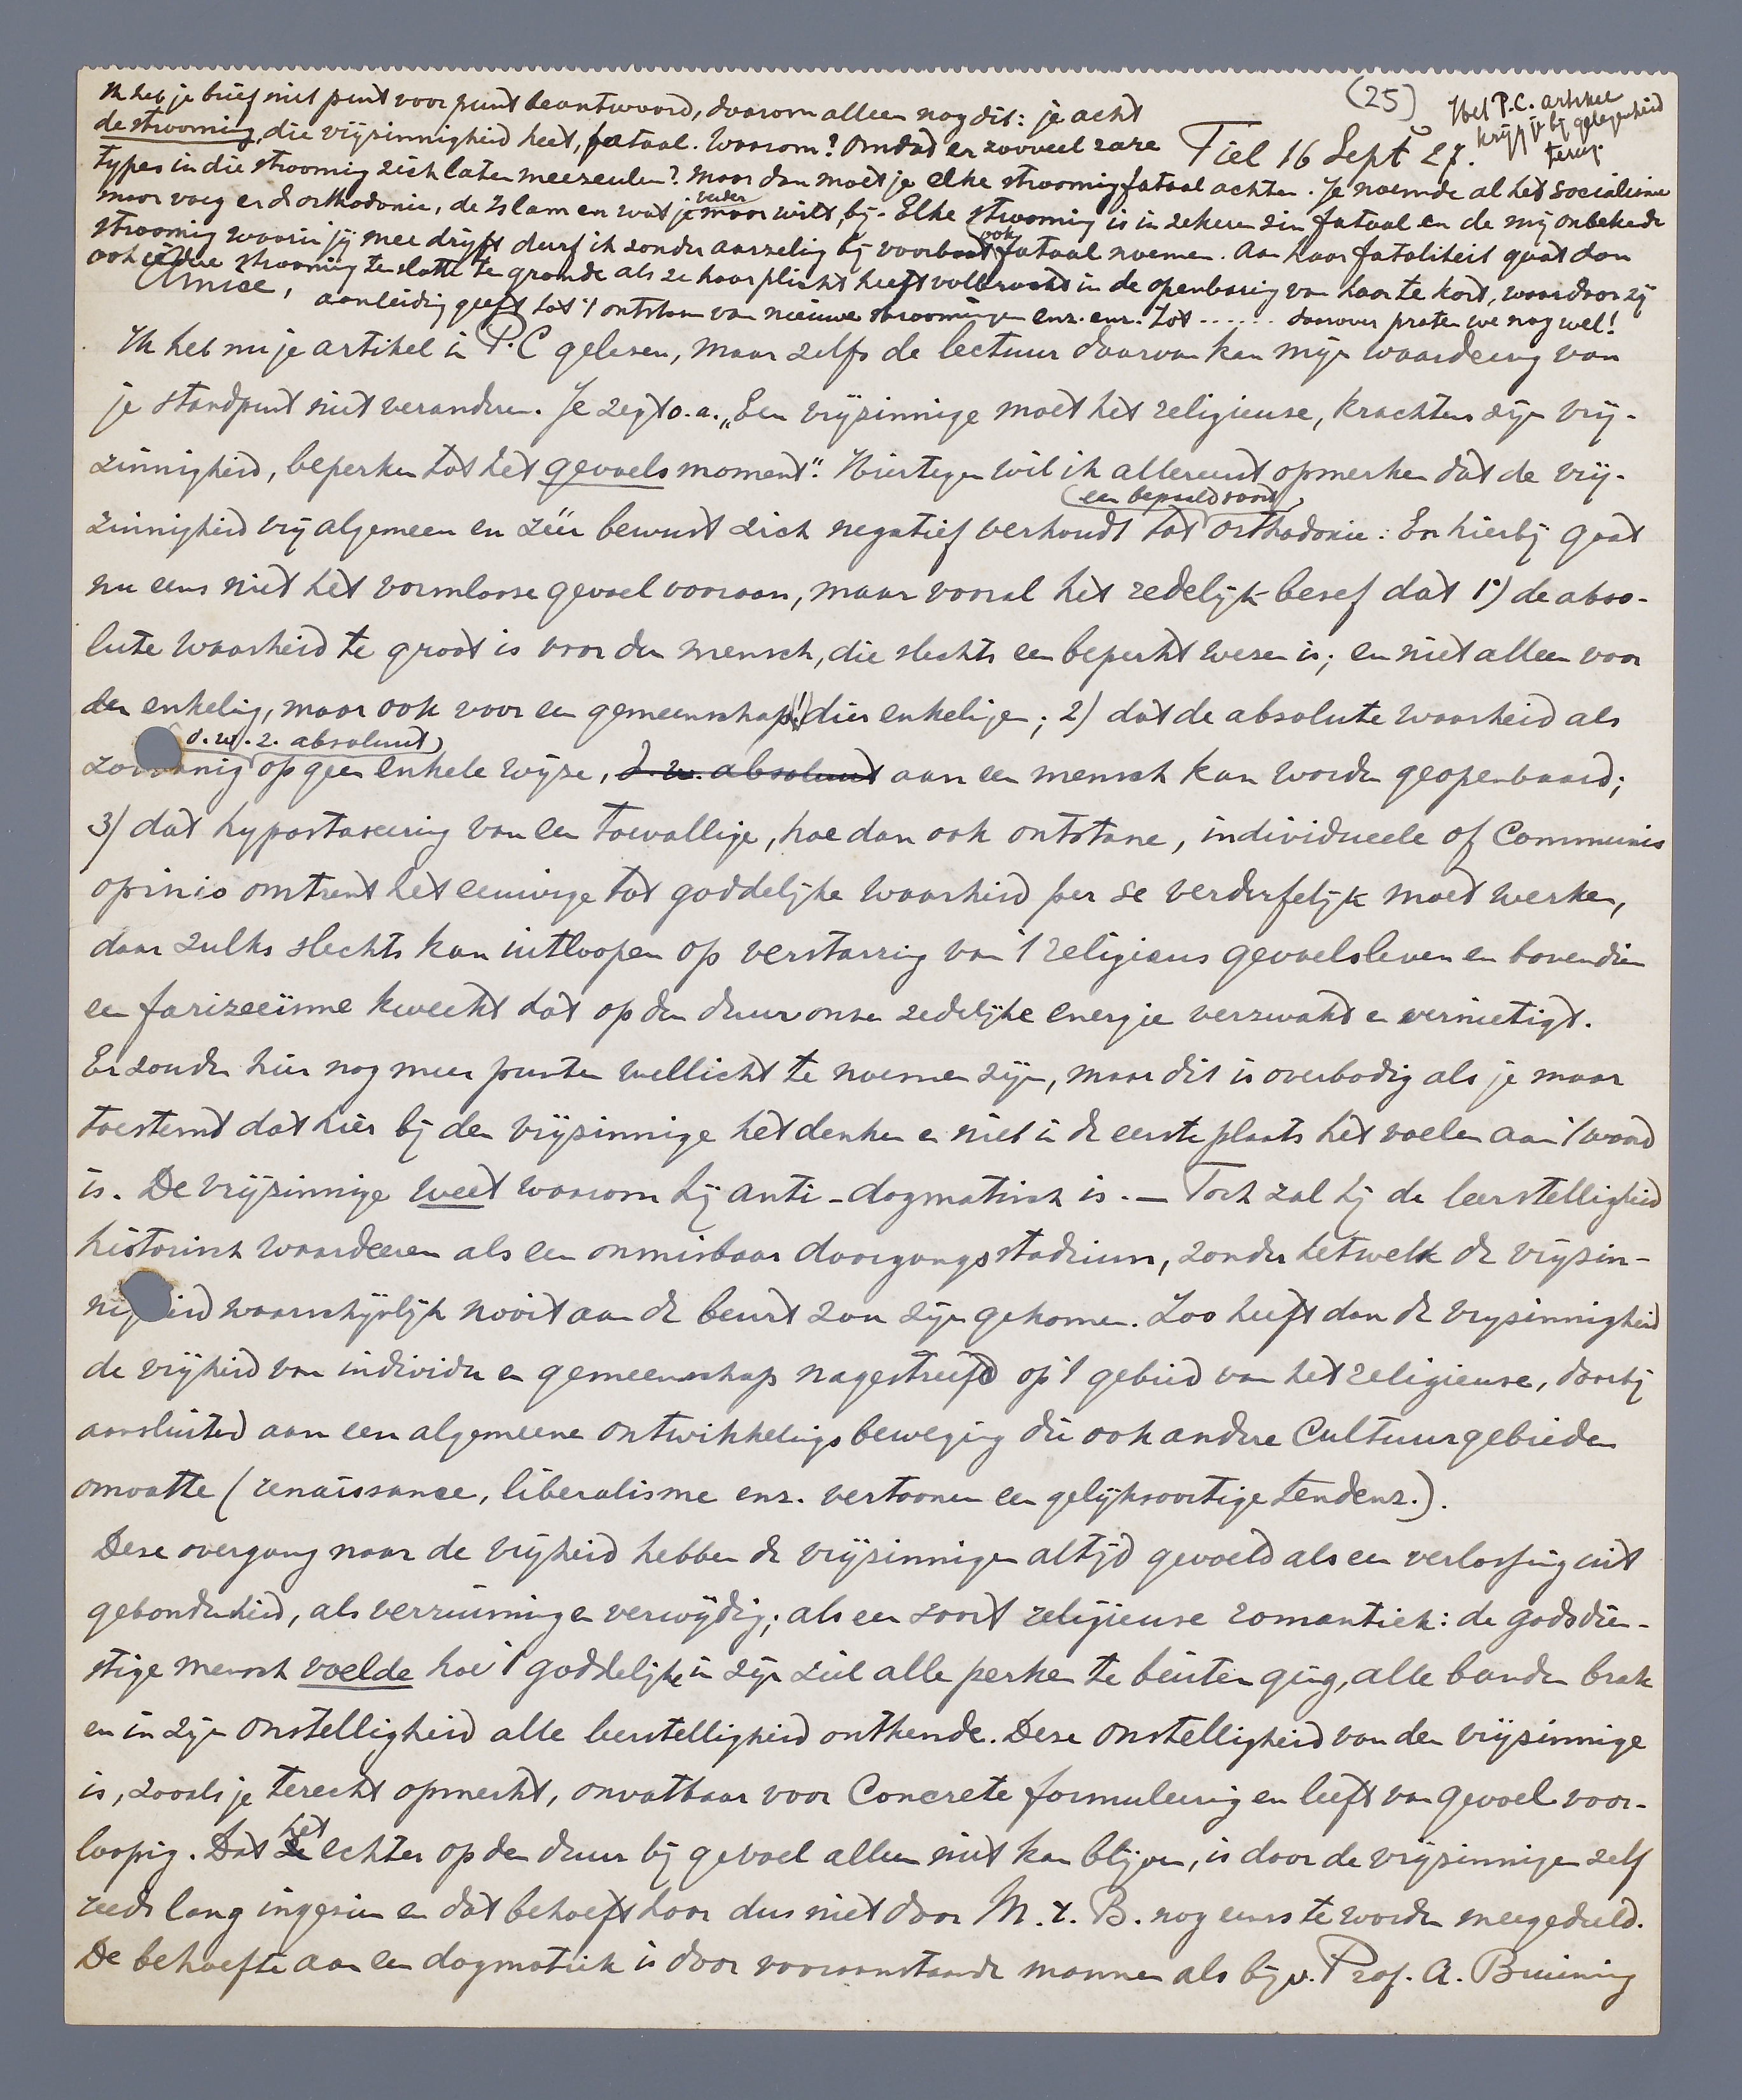 (25)
Het P.C. artikel
krijg je bij gelegenheid
terug.
Tiel 16 Sept 27.
Ik heb je brief niet punt voor punt beantwoord, daarom alleen nog dit: je acht
de strooming, die vrijzinnigheid heet, fataal. Waarom? Omdat er zooveel rare
types in die strooming zich laten meezeulen? Maar dan moet je elke strooming fataal achten. Je noemde al het socialisme
maar voeg er de orthodoxie, de Islam en wat je verder maar wilt, bij. Elke strooming is in zekeren zin fataal en de mij onbekende
strooming waarin jij mee drijft durf ik zonder aarzeling bij voorbaat ook fataal noemen. Aan haar fataliteit gaat dan
ook iedere strooming ten slotte te gronde als ze haar plicht heeft volbracht in de openbaring van haar te kort, waardoor zij
aanleiding geeft tot 't ontstaan van nieuwe stroomingen enz. enz. tot ...... daarover praten we nog wel!
Amice,
Ik heb nu je artikel in P.C gelezen, maar zelfs de lectuur daarvan kan mijn waardeering van
je standpunt niet veranderen. Je zegt o.a. „Een vrijzinnige moet het religieuse, krachtens zijn vrij-
zinnigheid, beperken tot het gevoelsmoment". Hiertegen wil ik allereerst opmerken dat de vrij-
zinnigheid vrij algemeen en zéér bewust zich negatief verhoudt tot (een bepaald soort) orthodoxie. En hierbij gaat
nu eens niet het vormlooze gevoel vooraan, maar vooral het redelijk besef dat 1°) de abso-
lute waarheid te groot is voor den mensch, die slechts een beperkt wezen is; en niet alleen voor
den enkeling, maar ook voor een gemeenschap(!) dier enkelingen; 2) dat de absolute waarheid als
zoodanig (d.w.z. absoluut) op geen enkele wijze, d.w. absoluut aan een mensch kan worden geopenbaard;
3) dat hypostaseering van een toevallige, hoe dan ook ontstane, individueele of Communis
opinio omtrent het eeuwige tot goddelijke waarheid per se verderfelijk moet werken,
daar zulks slechts kan uitloopen op verstarring van 't religieus gevoelsleven en bovendien
een farizeeïsme kweekt dat op den duur onze zedelijke energie verzwakt en vernietigt.
Er zouden hier nog meer punten wellicht te noemen zijn, maar dit is overbodig als je maar
toestemt dat hier bij den vrijzinnige het denken en niet in de eerste plaats het voelen aan 't woord
is. De vrijzinnige weet waarom hij anti-dogmatisch is. — Toch zal hij de leerstelligheid
historisch waardeeren als een onmisbaar doorgangsstadium, zonder hetwelk de vrijzin-
nigheid waarschijnlijk nooit aan de beurt zou zijn gekomen. Zoo heeft dan de vrijzinnigheid
de vrijheid van individu en gemeenschap nagestreefd op 't gebied van het religieuse, daarbij
aansluitend aan een algemeene ontwikkelingsbeweging die ook andere Cultuurgebieden
omvatte (renaissance, liberalisme enz. vertoonen een gelijksoortige tendenz.).
Deze overgang naar de vrijheid hebben de vrijzinnigen altijd gevoeld als een verlossing uit
gebondenheid, als verruiming en verwijding; als een soort religieuse romantiek: de godsdien-
stige mensch voelde hoe 't goddelijke in zijn ziel alle perken te buiten ging, alle banden brak
en in zijn onstelligheid alle leerstelligheid ontkende. Deze onstelligheid van den vrijzinnige
is, zooals je terecht opmerkt, onvatbaar voor Concrete formuleering en leeft van gevoel voor-
loopig. Dat het echter op den duur bij gevoel alleen niet kan blijven, is door de vrijzinnigen zelf
reeds lang ingezien en dat behoeft haar dus niet door M. t. B. nog eens te worden meegedeeld.
De behoefte aan een dogmatiek is door vooraanstaande mannen als bijv. Prof. A. Bruining